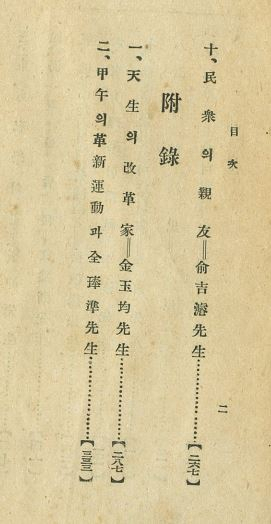 目次
十、民衆의親友=兪吉濬先生………【二六七】
附錄
一、天生의改革家=金玉均先生………【二八七】
二、甲午의革新運動과全琫準先生………【三三三】
二